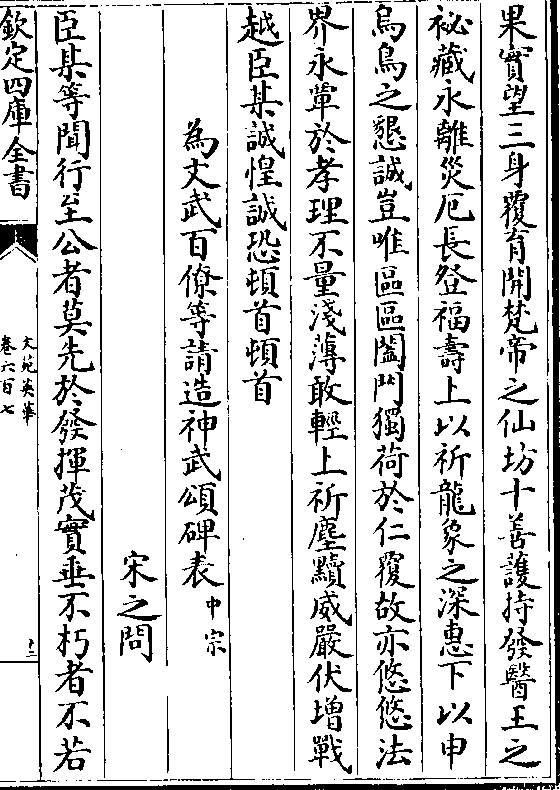 果實望三身覆育開梵帝之仙坊十善護持發醫王之
祕藏永離災厄長登福壽上以祈龍象之深惠下以申
烏鳥之懇誠豈唯區區闔門獨荷於仁覆故亦悠悠法
界永羣於孝理不量淺薄敢輕上祈塵黷威嚴伏增戰
越臣某誠惶誠恐頓首頓首
為文武百僚等請造神武頌碑表中宗
宋之問
臣某等聞行至公者莫先於發揮茂實垂不朽者不若
欽定四庫全書
文苑英華
卷六百七
十二